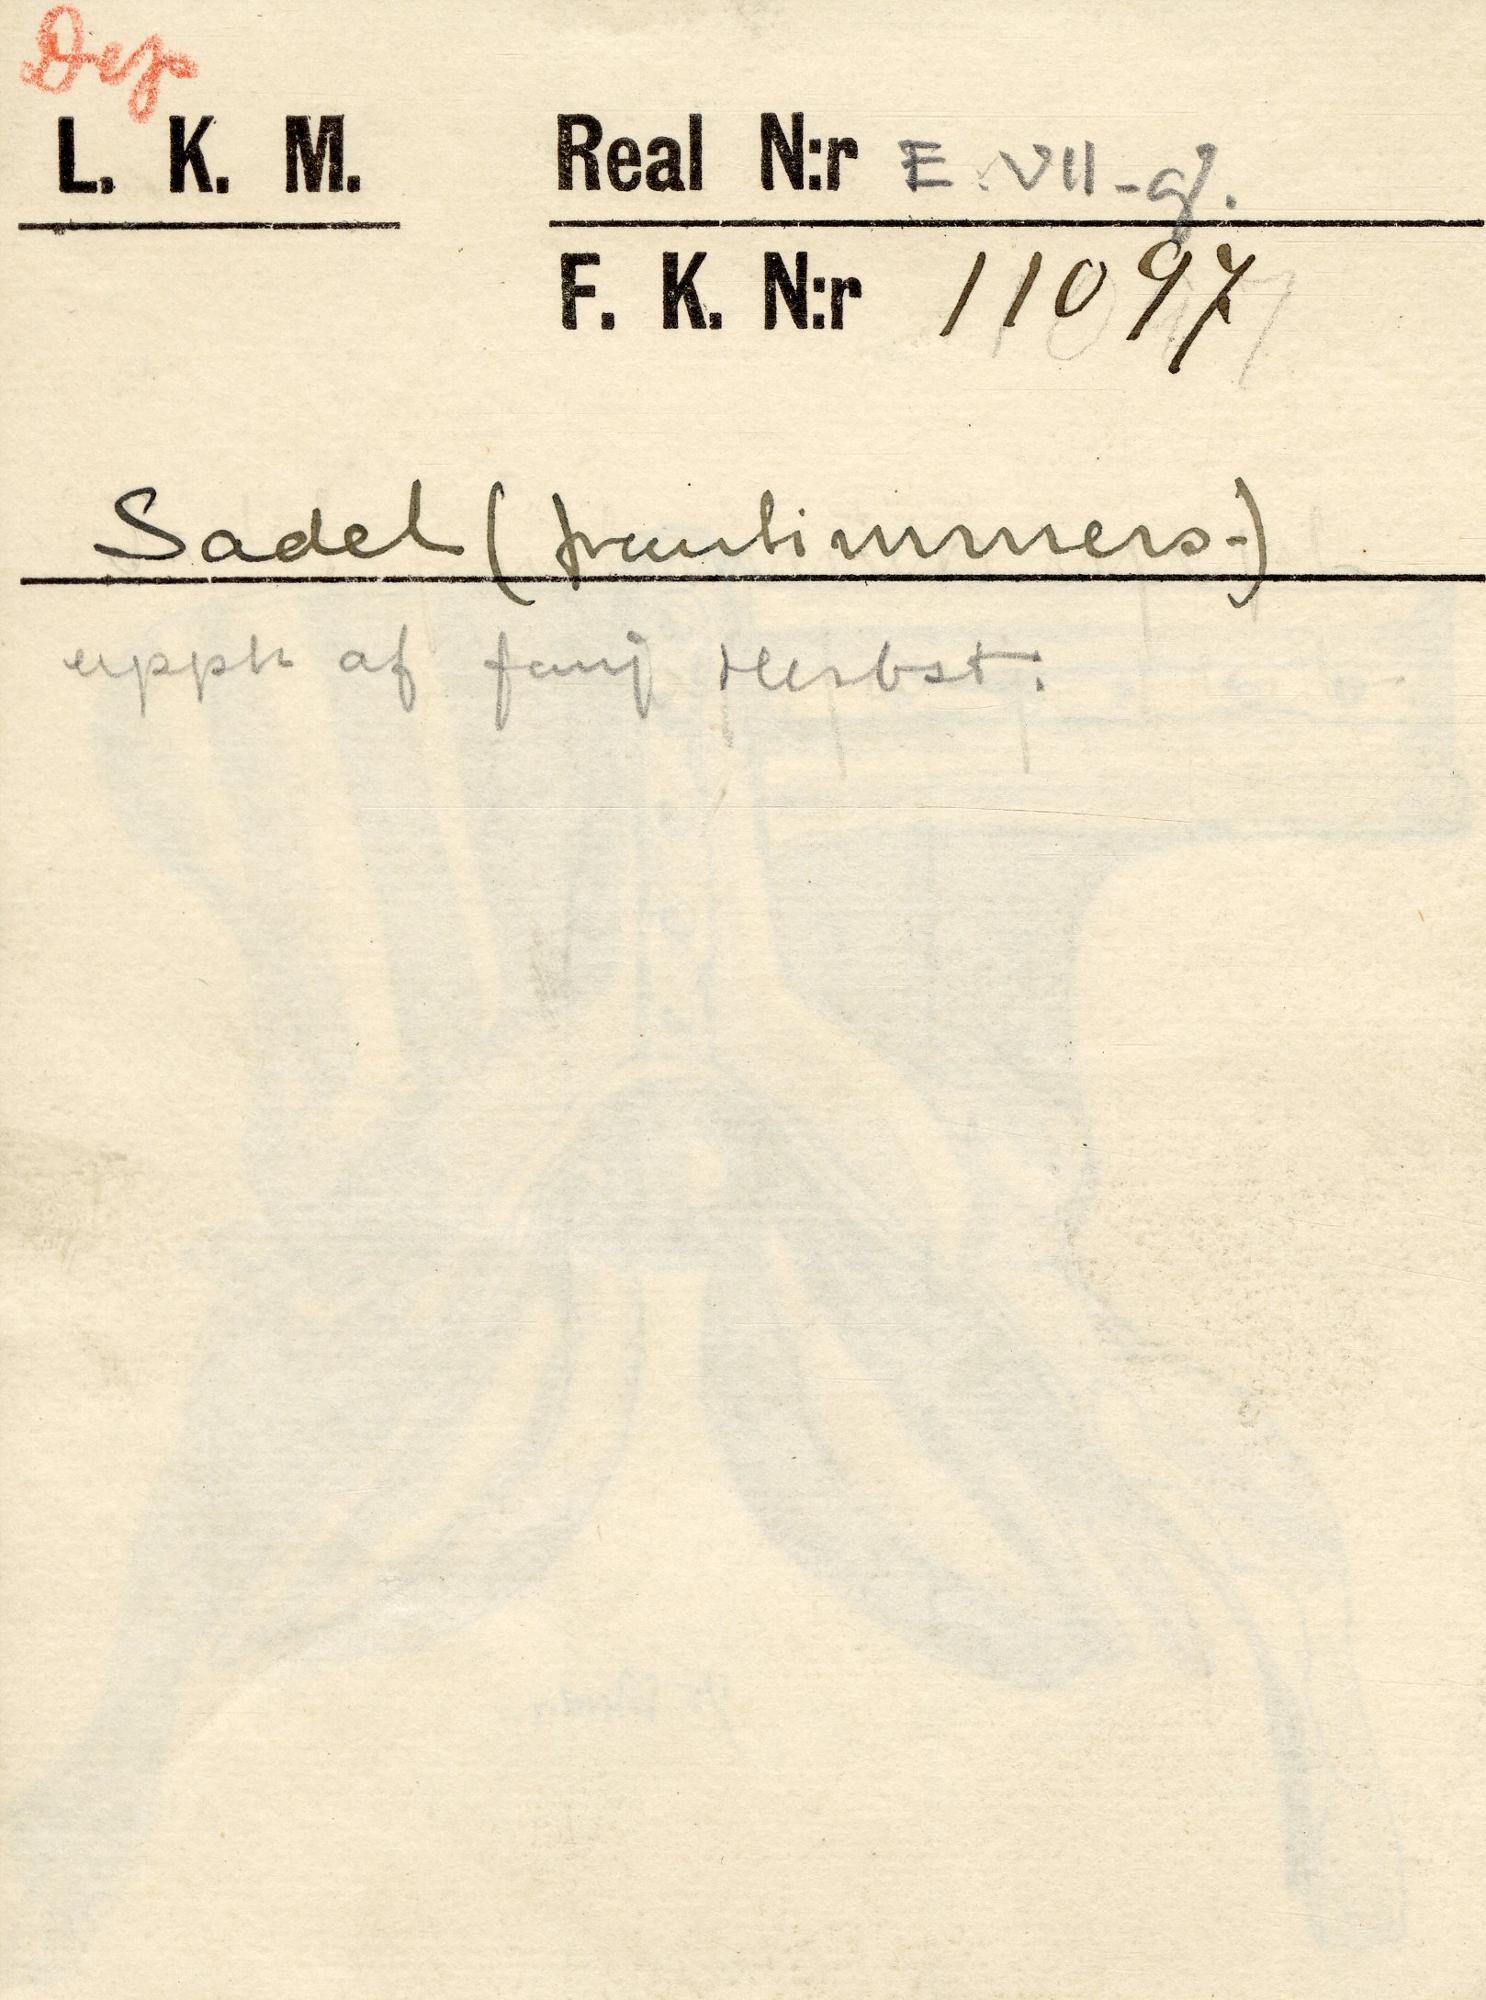 Dep
L. K. M. Real N:r E. VII-g.
F. K. N:r 11097
Sadel (fruntimmers-)
upph af fanj Herbst.